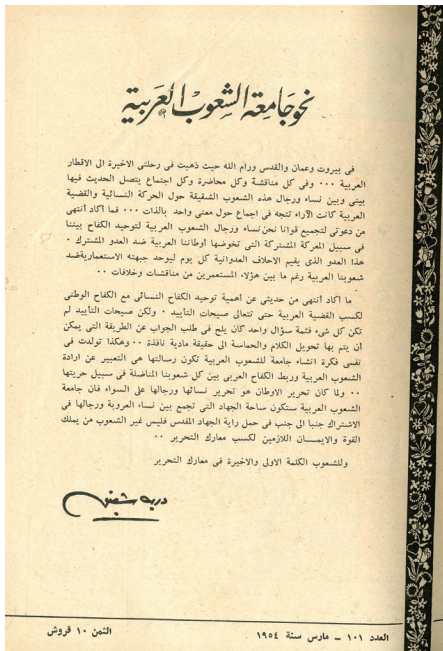 نحو جامعة الشعوب العربية
في بيروت وعمان والقدس ورام الله حيث ذهبت في رحلتي الاخيرة الى الاقطار
العربية ٠٠٠ وفي كل مناقشة وكل محاضرة وكل اجتماع يتصل الحديث فيها
بيني وبين نساء ورجال هذه الشعوب الشقيقة حول الحركة النسائية والقضية
العربية كانت الآراء تتجه في اجماع حول معنى واحد بالذات ٠٠٠ فما أكاد أنتهى
من دعوتى لتجميع قوانا نحن نساء ورجال الشعوب العربية لتوحيد الكفاح بيننا
في سبيل المعركة المشتركة التى تخوضها أوطاننا العربية ضد العدو المشترك ٠
هذا العدو الذى يقيم الاحلاف العدوانية كل يوم ليوحد جبهته الاستعمارية ضد
شعوبنا العربية رغم ما بين هؤلاء المستعمرين من مناقشات وخلافات ٠٠
ما أكاد أنتهى من حديثى عن أهمية توحيد الكفاح النسائى مع الكفاح الوطنى
لكسب القضية العربية حتى تتعالى صيحات التأييد ٠ ولكن صيحات التأييد لم
تكن كل شىء فثمة سؤال واحد كان يلح في طلب الجواب عن الطريقة التى يمكن
أن يتم بها تحويل الكلام والحماسة الى حقيقة مادية نافذة ٠٠ وهكذا تولدت فى
نفسى فكرة انشاء جامعة للشعوب العربية تكون رسالتها هى التعبير عن ارادة
الشعوب العربية وربط الكفاح العربى بين كل شعوبنا المناضلة في سبيل حريتها
٠٠ ولما كان تحرير الاوطان هو تحرير نسائها ورجالها على السواء فان جامعة
الشعوب العربية ستكون ساحة الجهاد التى تجمع بين نساء العروبة ورجالها فى
الاشتراك جنبا الى جنب فى حمل راية الجهاد المقدس فليس غير الشعوب من يملك
القوة والايمـــان اللازمين لكسب معارك التحرير ٠٠
وللشعوب الكلمة الاولى والاخيرة فى معارك التحرير
درية شفيق
العدد ١٠١ – مارس سنة ١٩٥٤
الثمن ١٠ قروش